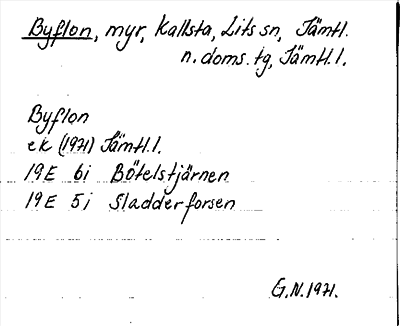 Byflon, myr, Kallsta, Lits sn, Jämtl.
n. doms. tg, Jämtl. l.
Byflon
ek (1971) Jämtl. l.
19E 6i Bötelstjärnen
19E 5i Sladderforsen
G.N. 1971.